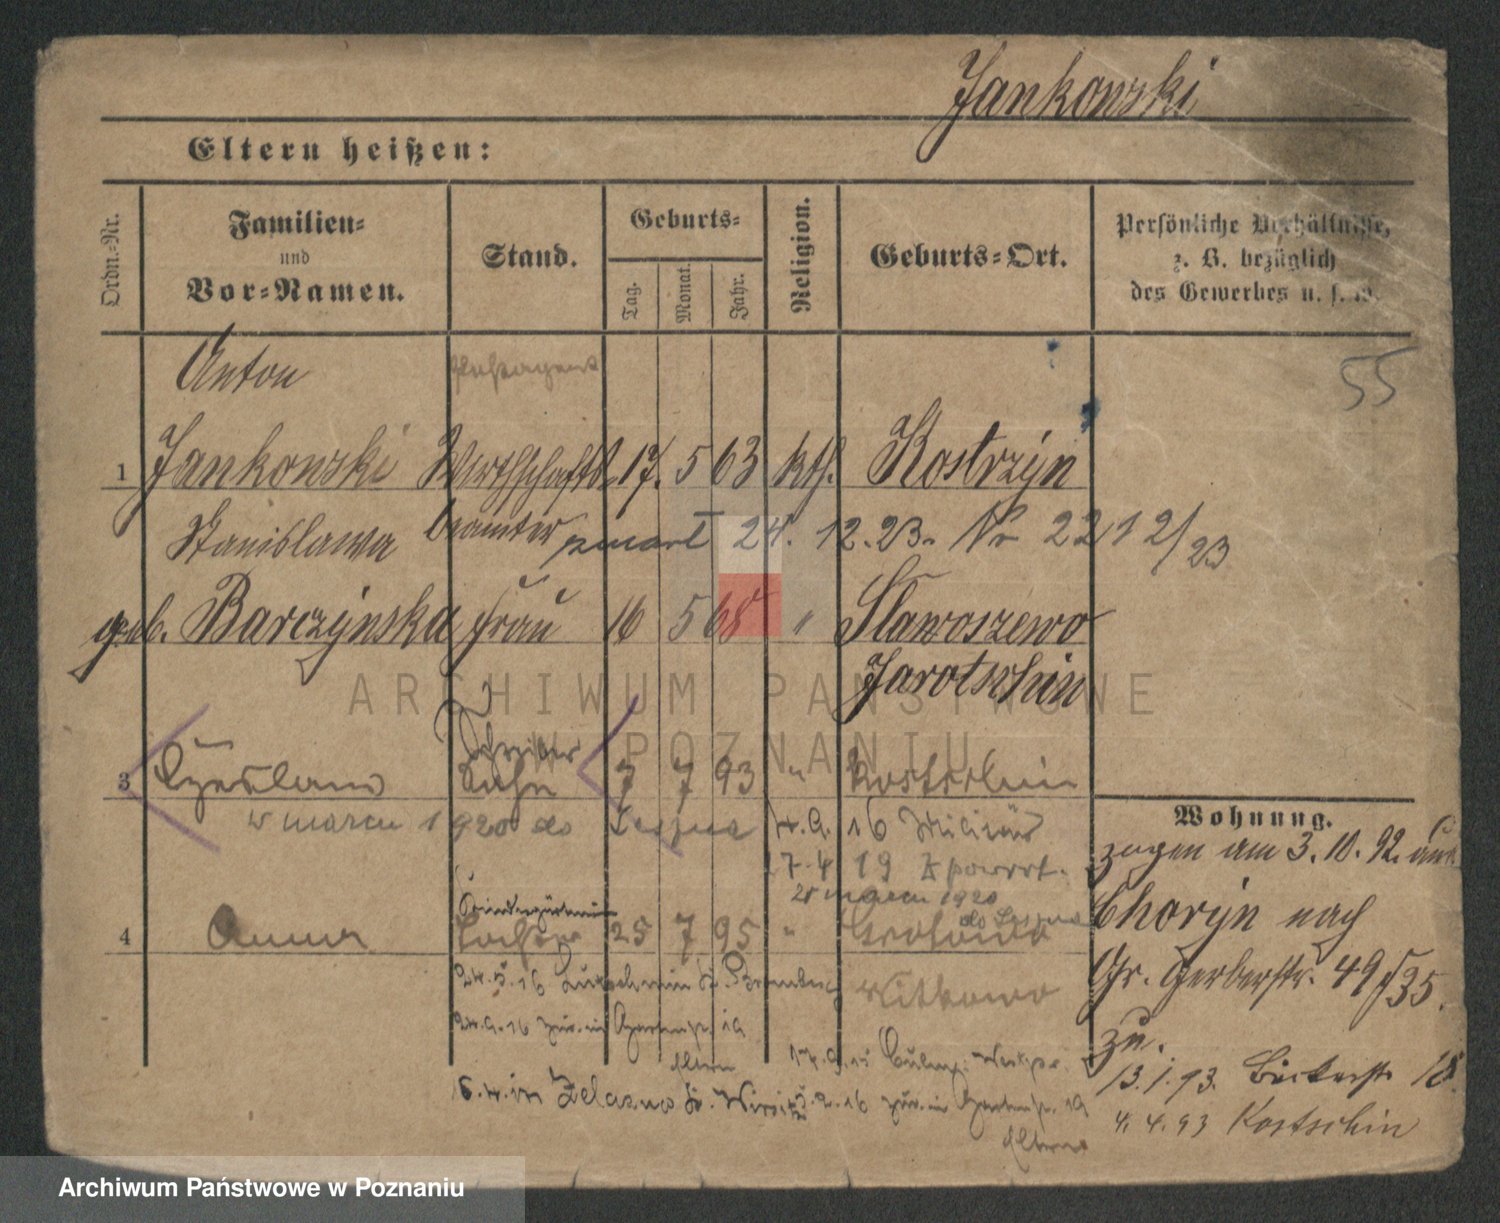 Jankowski
Eltern heißen:
Ordn.-Nr.
Familien-
und
Vor-Namen.
Stand.
Geburts-
Tag.
Monat.
Jahr.
Religion.
Geburts-Ort.
Persönliche Verhältnisse,
z. B. bezüglich
des Gewerbes u. s. w.
55
Anton
1 Jankowski Wirthschafts 17. 5 63 kth. Kostrzyn
Stanislawa beamter zmarł 24. 12. 23. Nr 2212/23
geb. Barczynska Frau 16 5 68 " Slawoszewo
Jarotschin
Schreiber
3 Czeslaus Sohn 7 7 93 " Kostschin
w marcu 1920 do Leszna 4.9. 16 Militär
17.4 19 z powrt.
21 marca 1920
do Leszna
4 Anna Tochter 25 7 95 "
24.5.16
Witkowo
24.9.16 zur. in Gartenstr. 19
Eltern
17.9.15 Westpr.
in Zelazno Kr. Wirsitz 3.2.16 zur. in Gartenstr. 19
Eltern
Wohnung.
zogen am 3. 10. 92. aus
Choryn nach
Gr. Gerberstr. 49/35.
zu.
13.1.93. Bäckerstr. 18
4.4.93 Kostschin
ARCHIWUM PAŃSTWOWE
W POZNANIU
Archiwum Państwowe w Poznaniu